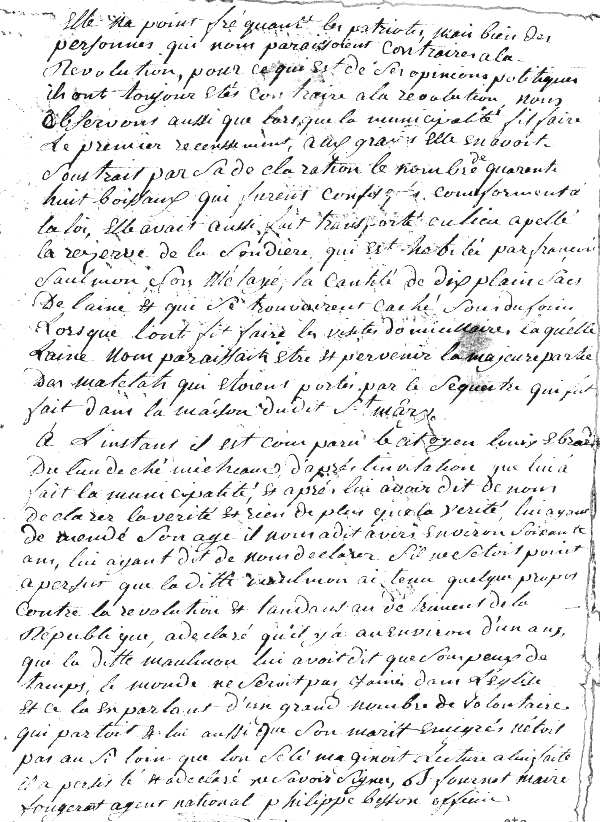 Elle na point fréquanté les patriotes, mais bien des
personnes qui nom paraissoient Contraires a la
Révolution, pour ce qui est de Ses opinions politiques
ils ont toujour étés Contraire a la révolution, nous
observons aussi que lorsque la municipalité fit faire
Le premier recensement, aux grains Elle en avoit
Soustrait par Sa declaration le nombre de quarente
huit boissaux qui furent confisqués conformement a
la loi, Elle avait aussi fait transporté au lieu apellé
la rezerve de la Sondiere, qui est habitée par françois
Saulmon, Son Métayé, la Cantité de dix plain Sacs
De laine & qui Se trouvairent Caché Sous du foin
Lorsque l'ont fit faire les visites domicilliaires, laquelle
Laine nom paraissait Etre & pervenir la majeure partie
Das matelats qui etoiens portés par le Sequestre qui fut
fait dans la maison dudit St mars
A L'instant il est comparu le citoyen louis Ebrad
Du lieu de ché micheau, d'après linvitation que lui a
fait la municipalité, Et après lui avoir dit de nous
declarer la vérité Et rien de plus que la verité, lui ayant
demendé Son age il nous a dit avoir Environ Soixante
ans, lui ayant dit de nous declarer S'il ne Sétoit point
apersut que la ditte maulmon ai tenu quelque propos
Contre la revolution Et tandans au détriment de la
République, a declaré qu'il y a au environ d'un ans,
que la ditte maulmon lui avoit dit que Sompeux de
tamps, le monde ne Seroit pas dans L'Eglise
Et ce la en parlant d'un grand nombre de volontaire
qui partoit & lui aussi que Son marit Emigrés netoit
pas au Si loin que l'on Se lé maginoit Lecture a lui faite
il a persisté & a declaré ne Savoir Signer, fournet maire
fougerat agent national philippe besson officier